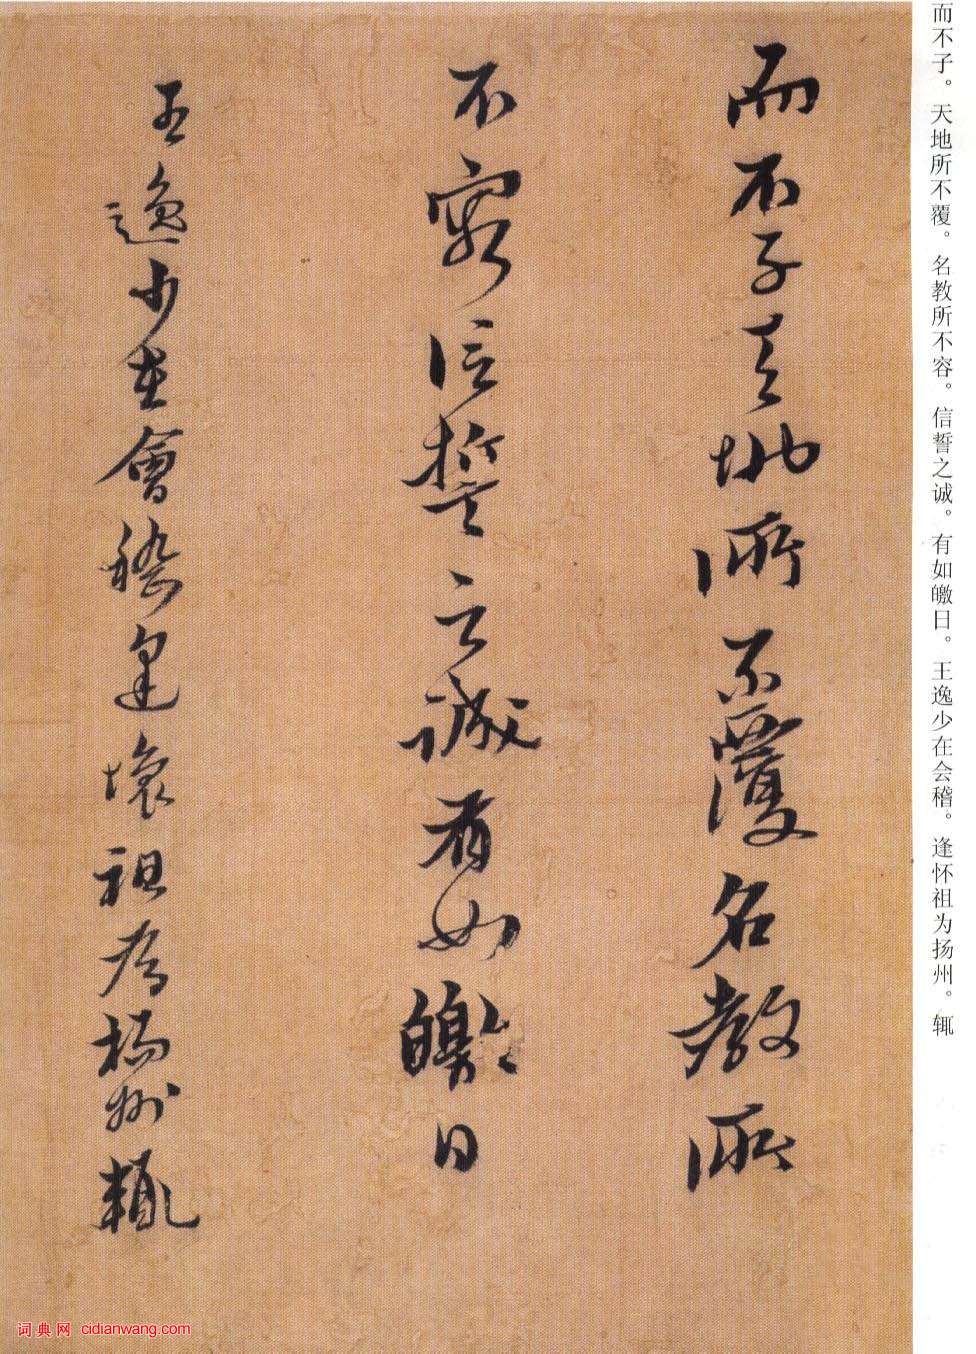 而不子。天地所不覆。名教所不容。信誓之诚。有如皦日。王逸少在会稽。逢怀祖为扬州。辄
而不子天地所不覆名教所
不容信誓之誠有如皦日
王逸少在會稽逢懷祖為揚州輒
词典网 cidianwang.com